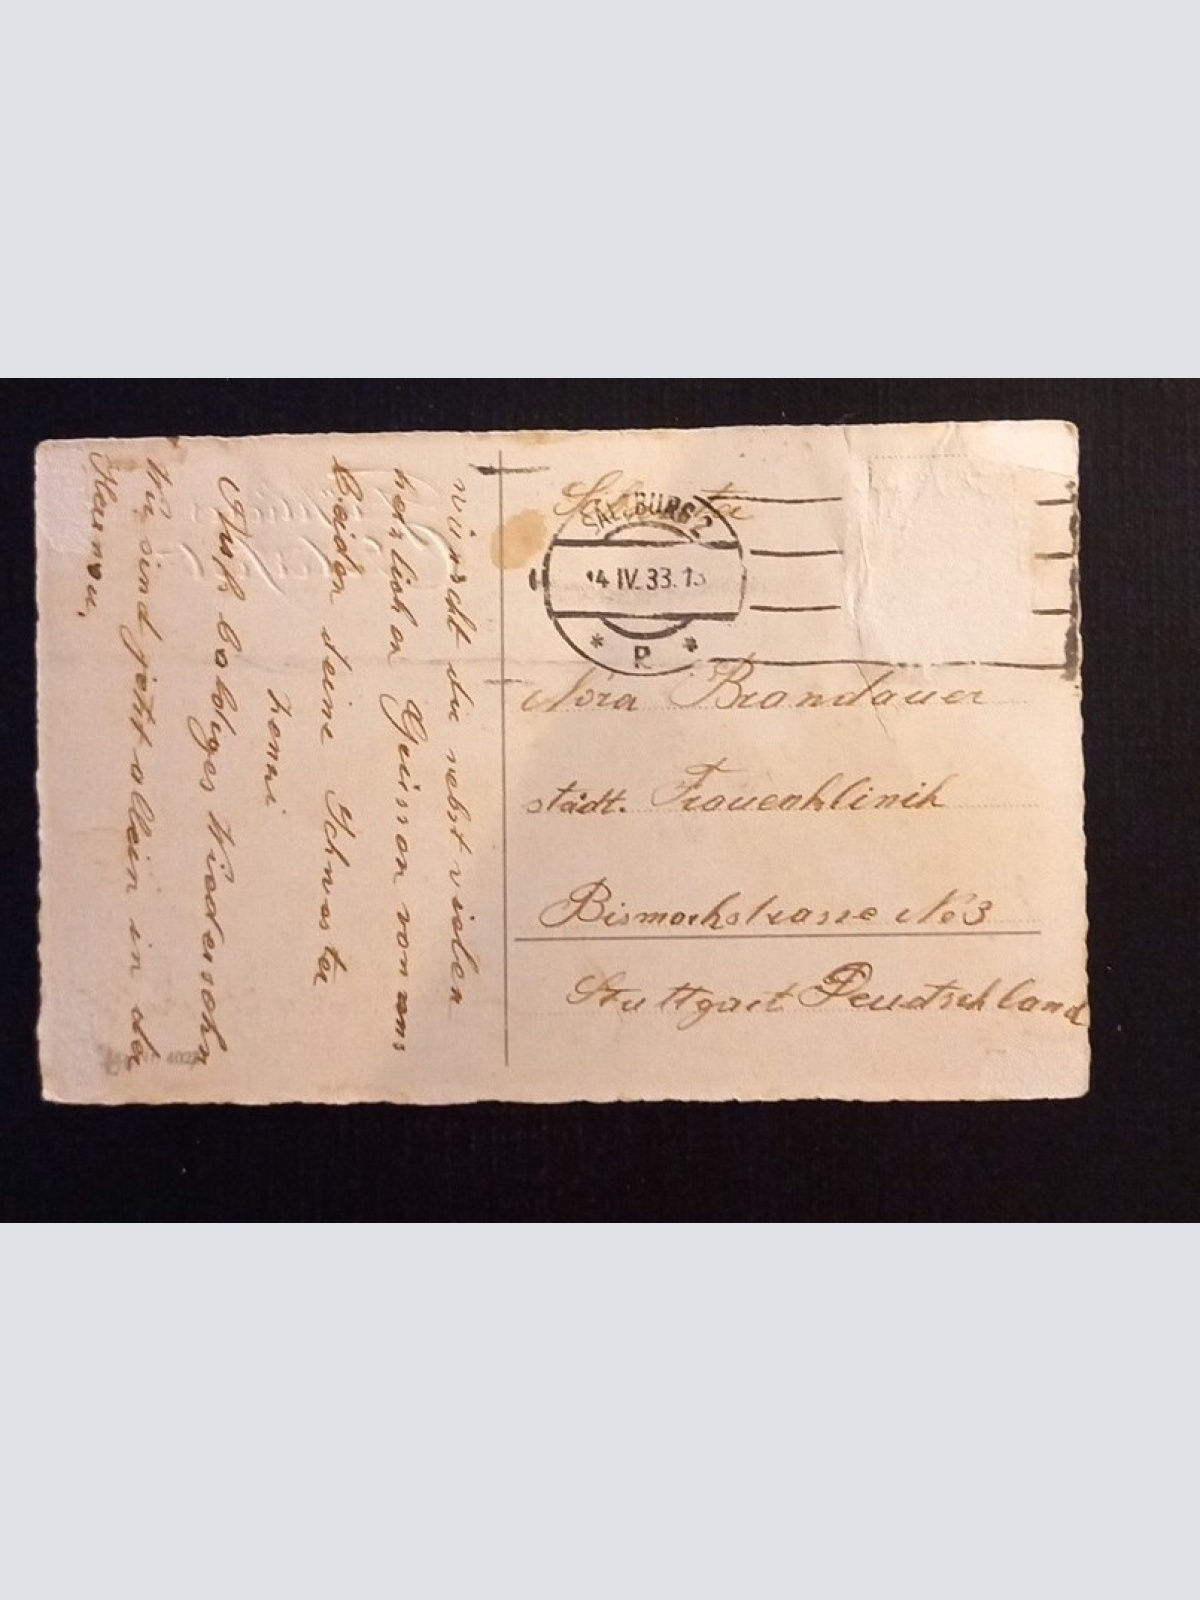 wünscht dir nebst vielen
herzlichen Grüssen von uns
beiden deine Schwester
Auf baldiges Wiedersehn
Wir sind jetzt allein in der
SALZBURG 2
14 IV. 33. 13
* *
Nora Brandauer
städt. Frauenklinik
Bismarkstrasse No 3
Stuttgart Deutschland